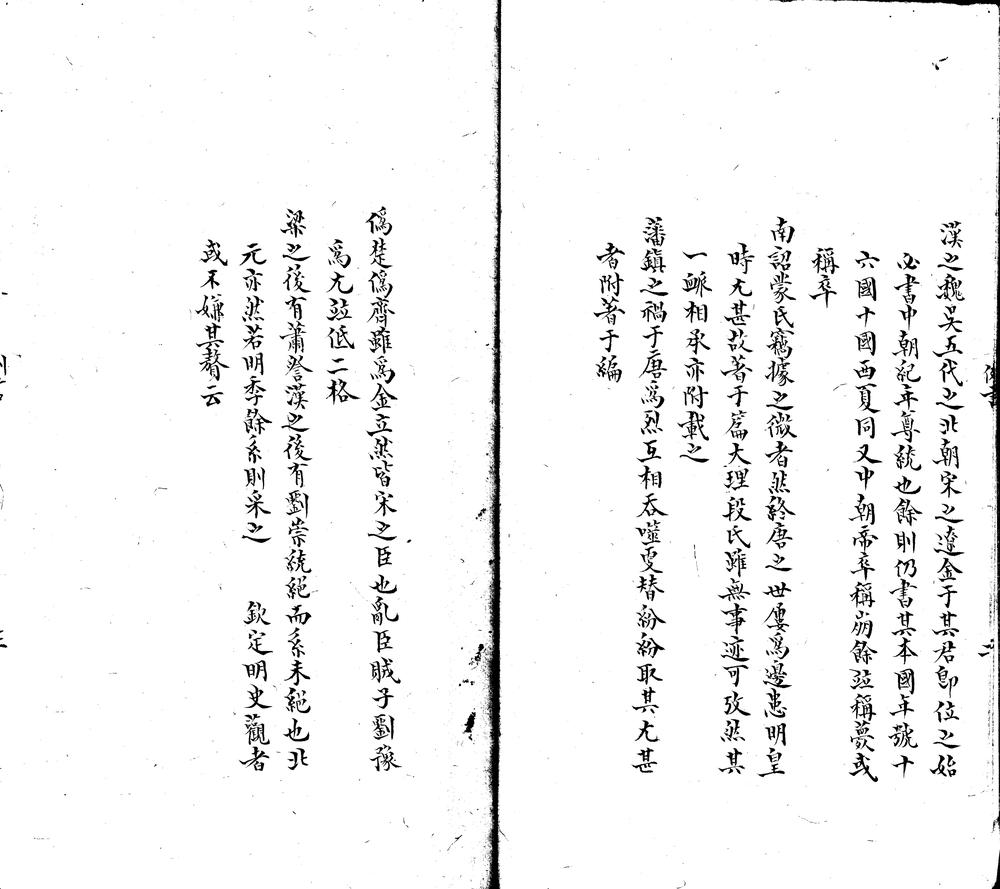 漢之魏吳五代之北朝宋之遼金于其君卽位之始
必書中朝紀年尊統也餘則仍書其本國年號十
六國十國西夏同又中朝帝卒稱崩餘竝稱薨或
稱卒
南詔蒙氏竊據之微者然終唐之世屢爲邊患明皇
時尤甚故著于篇大理段氏雖無事迹可攷然其
一脈相承亦附載之
藩鎮之禍于唐爲烈互相吞噬更替紛紛取其尤甚
者附著于編
僞楚僞齊雖爲金立然皆宋之臣也亂臣賊子劉豫
爲尤竝低二格
梁之後有蕭詧漢之後有劉崇統絕而系未絕也北
元亦然若明季餘系則采之 欽定明史觀者
或不嫌其贅云